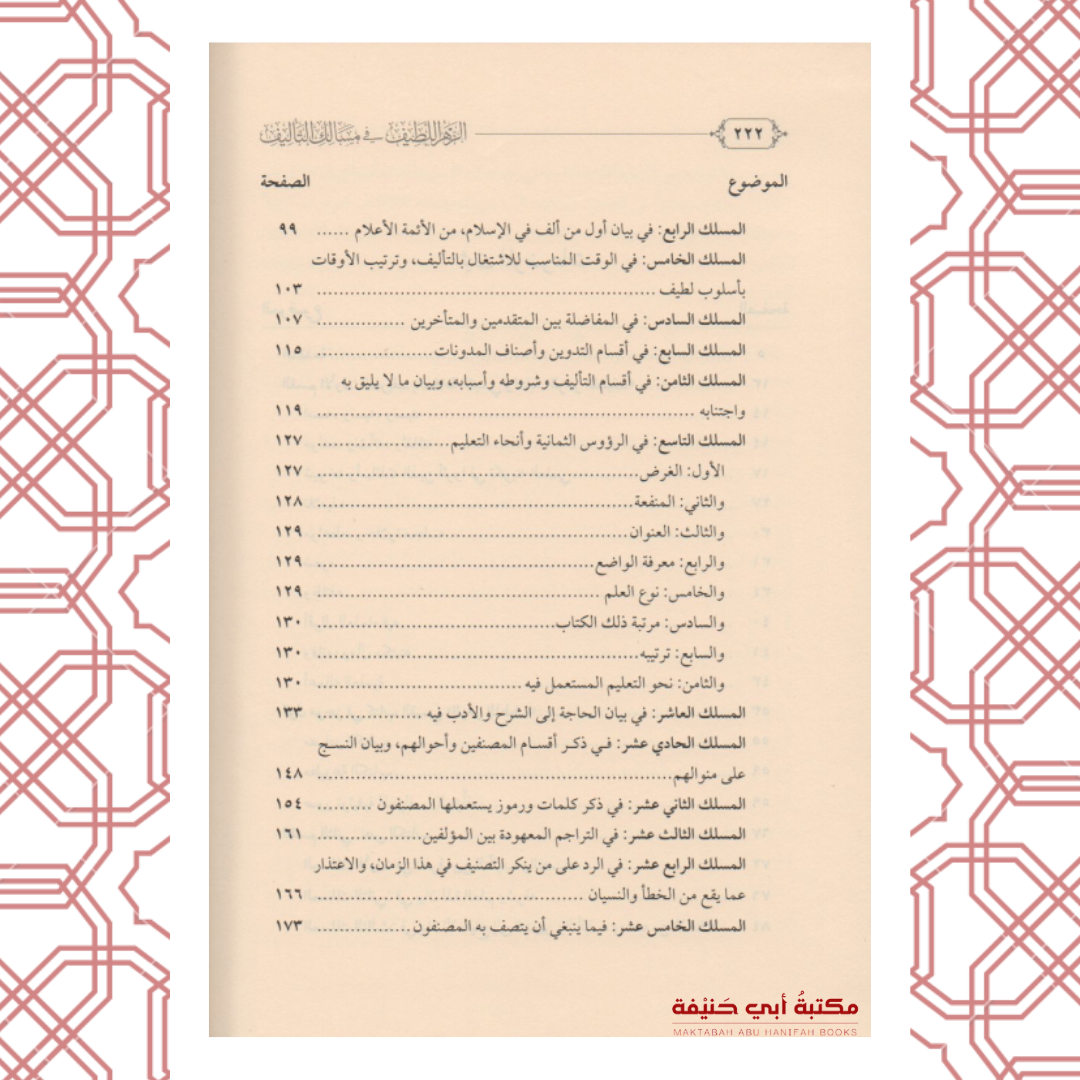 ٢٢٢ الزهر اللطيف في مسالك التأليف
الموضوع الصفحة
المسلك الرابع: في بيان أول من ألف في الإسلام، من الأئمة الأعلام ...... ٩٩
المسلك الخامس: في الوقت المناسب للاشتغال بالتأليف، وترتيب الأوقات
بأسلوب لطيف ........ ١٠٣
المسلك السادس: في المفاضلة بين المتقدمين والمتأخرين ........ ١٠٧
المسلك السابع: في أقسام التدوين وأصناف المدونات ........ ١١٥
المسلك الثامن: في أقسام التأليف وشروطه وأسبابه، وبيان ما لا يليق به
واجتنابه ........ ١١٩
المسلك التاسع: في الرؤوس الثمانية وأنحاء التعليم ........ ١٢٧
الأول: الغرض ........ ١٢٧
والثاني: المنفعة ........ ١٢٨
والثالث: العنوان ........ ١٢٩
والرابع: معرفة الواضع ........ ١٢٩
والخامس: نوع العلم ........ ١٢٩
والسادس: مرتبة ذلك الكتاب ........ ١٣٠
والسابع: ترتيبه ........ ١٣٠
والثامن: نحو التعليم المستعمل فيه ........ ١٣٠
المسلك العاشر: في بيان الحاجة إلى الشرح والأدب فيه ........ ١٣٣
المسلك الحادي عشر: فـي ذكـر أقسام المصنفين وأحوالهم، وبيان النسـج
على منوالهم ........ ١٤٨
المسلك الثاني عشر: في ذكر كلمات ورموز يستعملها المصنفون ........ ١٥٤
المسلك الثالث عشر: في التراجم المعهودة بين المؤلفين ........ ١٦١
المسلك الرابع عشر: في الرد على من ينكر التصنيف في هذا الزمان، والاعتذار
عما يقع من الخطأ والنسيان ........ ١٦٦
المسلك الخامس عشر: فيما ينبغي أن يتصف به المصنفون ........ ١٧٣
مكتبةُ أبي حَنيْفة
MAKTABAH ABU HANIFAH BOOKS